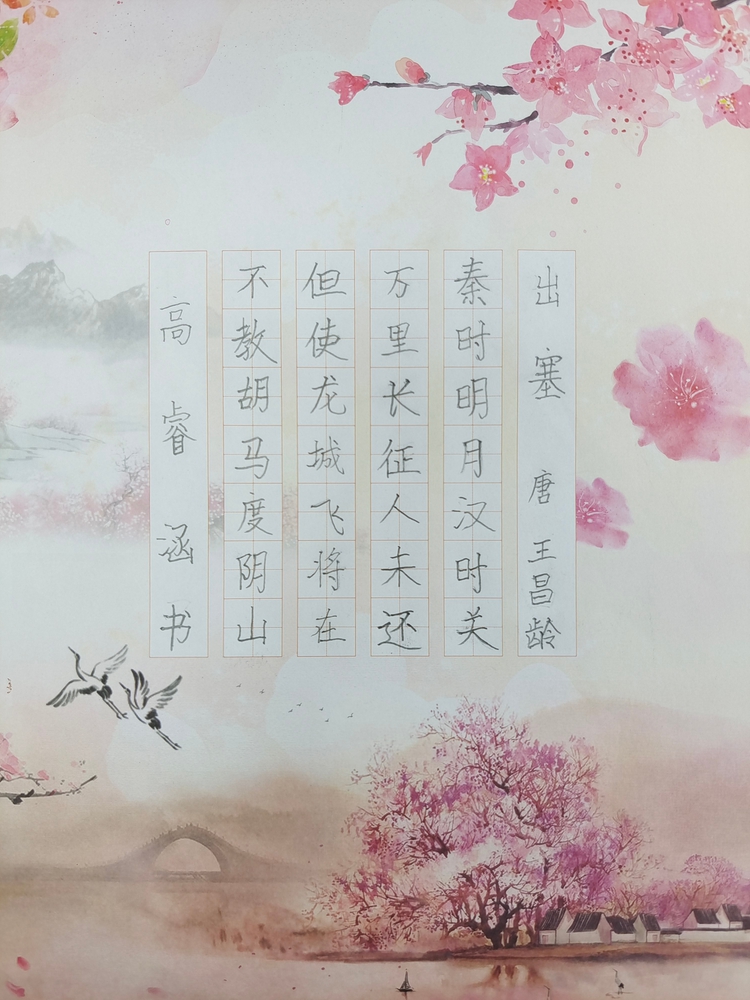 出塞 唐 王昌龄
秦时明月汉时关
万里长征人未还
但使龙城飞将在
不教胡马度阴山
高睿涵书